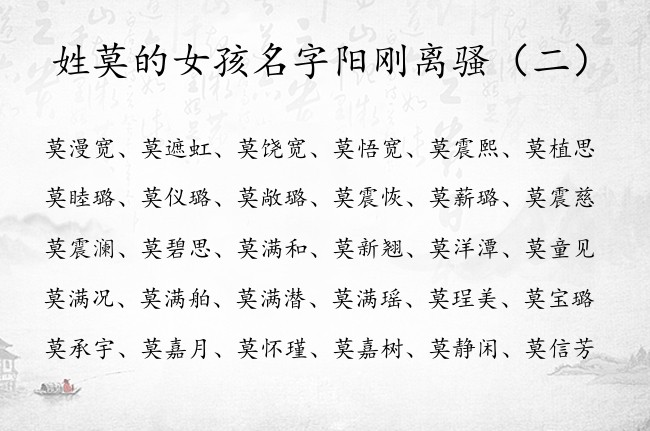 姓莫的女孩名字阳刚离骚（二）
莫漫宽、莫遮虹、莫饶宽、莫悟宽、莫震熙、莫植思
莫睦璐、莫仪璐、莫敞璐、莫震恢、莫薪璐、莫震慈
莫震澜、莫碧思、莫满和、莫新翘、莫洋潭、莫童见
莫满况、莫满舶、莫满潜、莫满瑶、莫珵美、莫宝璐
莫承宇、莫嘉月、莫怀瑾、莫嘉树、莫静闲、莫信芳